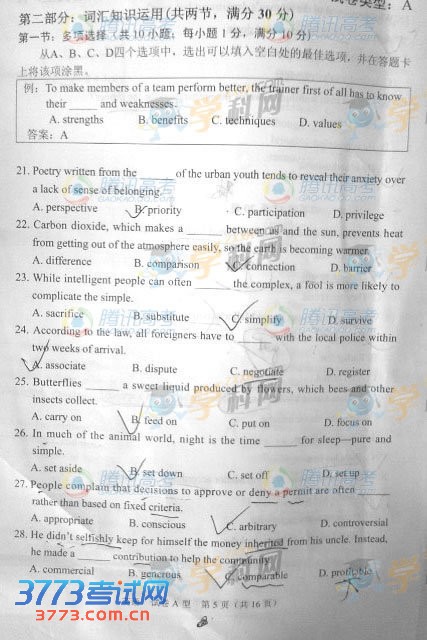 试卷类型：A
第二部分：词汇知识运用(共两节，满分 30 分)
第一节：多项选择 (共 10 小题；每小题 1 分，满分 10 分)
从A、B、C、D四个选项中，选出可以填入空白处的最佳选项，并在答题卡
上将该项涂黑。
例：To make members of a team perform better, the trainer first of all has to know
their _____ and weaknesses.
A. strengths B. benefits C. techniques D. values
答案：A
21. Poetry written from the _____ of the urban youth tends to reveal their anxiety over
a lack of sense of belonging.
A. perspective B. priority C. participation D. privilege
22. Carbon dioxide, which makes a _____ between us and the sun, prevents heat
from getting out of the atmosphere easily, so the earth is becoming warmer.
A. difference B. comparison C. connection D. barrier
23. While intelligent people can often _____ the complex, a fool is more likely to
complicate the simple.
A. sacrifice B. substitute C. simplify D. survive
24. According to the law, all foreigners have to _____ with the local police within
two weeks of arrival.
A. associate B. dispute C. negotiate D. register
25. Butterflies _____ a sweet liquid produced by flowers, which bees and other
insects collect.
A. carry on B. feed on C. put on D. focus on
26. In much of the animal world, night is the time _____ for sleep—pure and
simple.
A. set aside B. set down C. set off D. set up
27. People complain that decisions to approve or deny a permit are often _____
rather than based on fixed criteria.
A. appropriate B. conscious C. arbitrary D. controversial
28. He didn't selfishly keep for himself the money inherited from his uncle. Instead,
he made a _____ contribution to help the community.
A. commercial B. generous C. comparable D. profitable
试卷 A 型 第 5 页（共 16 页）
3773考试网
www.3773.com
腾讯高考
GAOKAO.QQ.COM
学科网